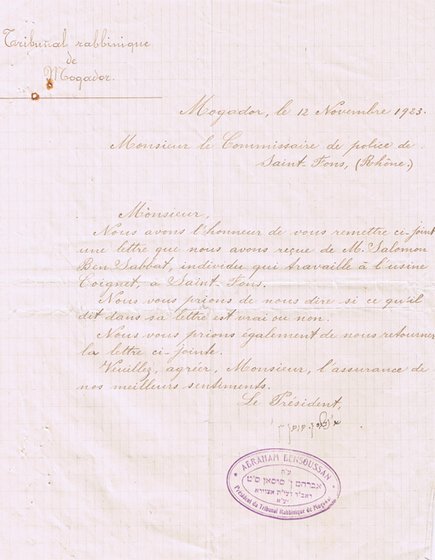 Tribunal rabbinique
de
Mogador.
Mogador, le 12 Novembre 1923.
Monsieur le Commissaire de police de
Saint. Fons, (Rhône)
Monsieur,
Nous avons l'honneur de vous remettre ci-joint
une lettre que nous avons reçue de M. Salomon
Ben Sabbat, individu qui travaille à l'usine
Coignet, à Saint. Fons.
Nous vous prions de nous dire si ce qu'il
dit dans sa lettre est vrai ou non.
Nous vous prions également de nous retourner
la lettre ci-jointe.
Veuillez, agrier, Monsieur, l'assurance de
nos meilleurs sentiments.
Le Président,
ABRAHAM BENSOUSSAN
ע"ה
אברהם ן' סוסאן ס"ט
Président du Tribunal Rabbinique de Mogador